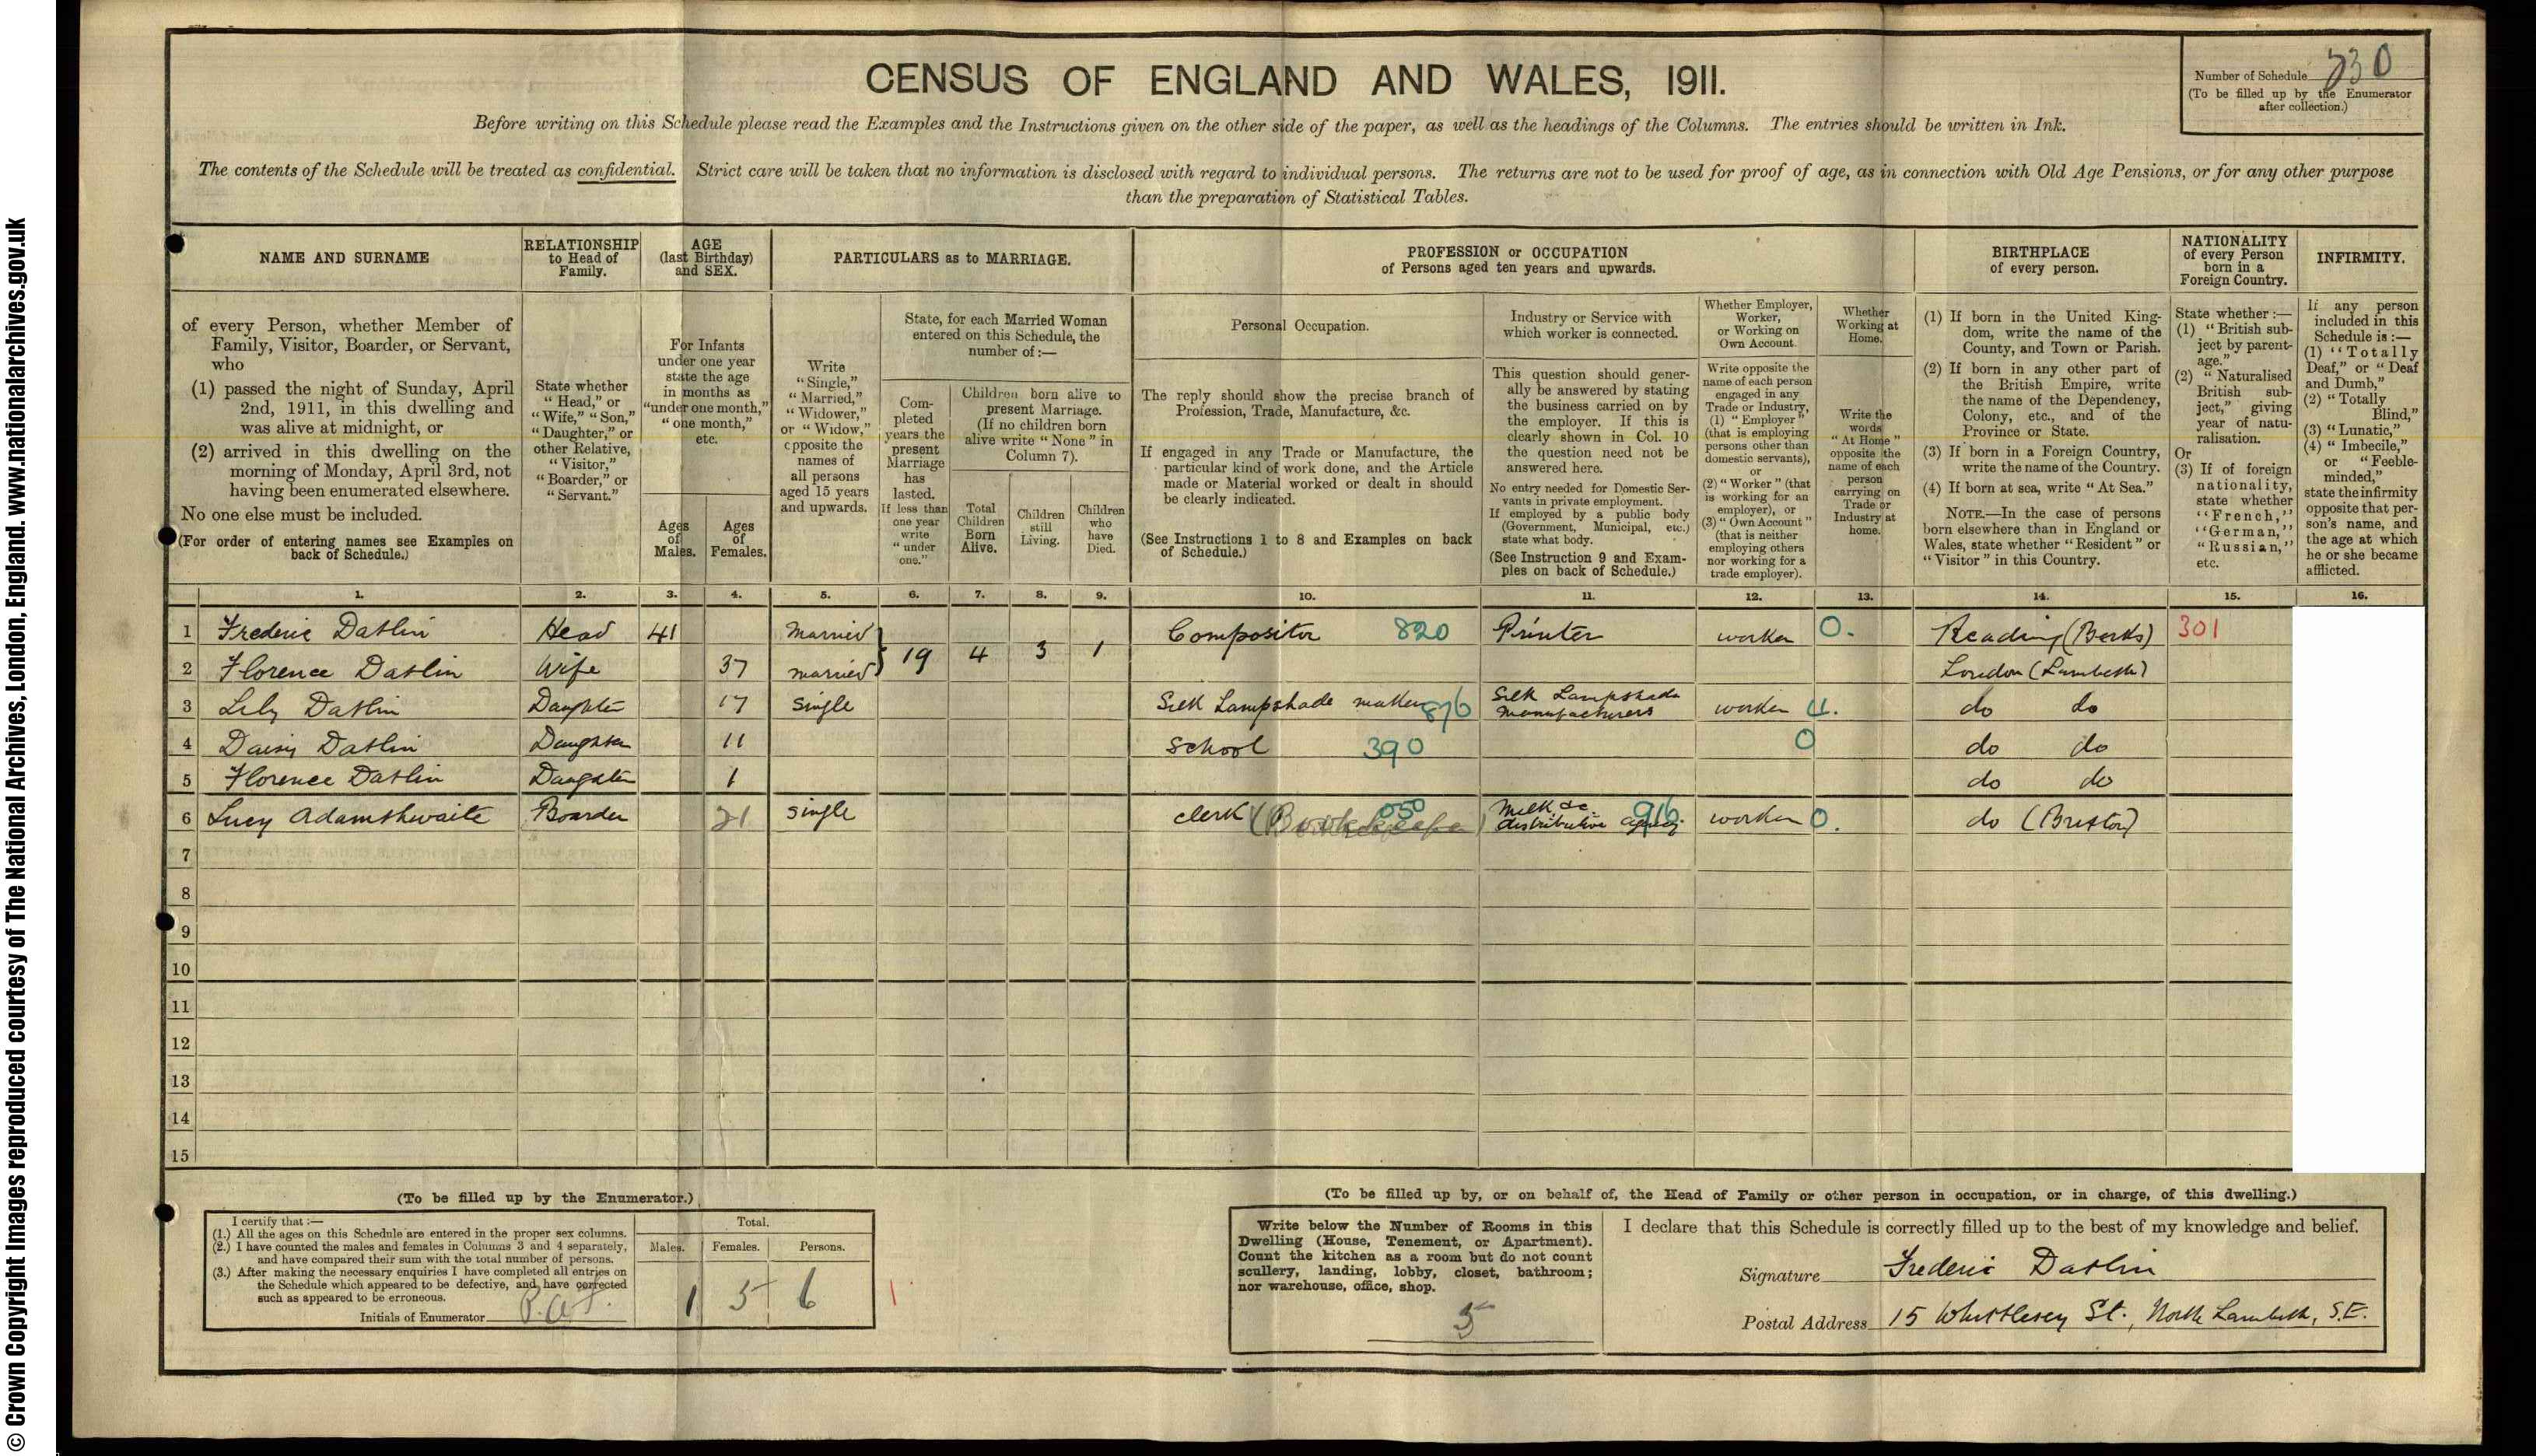 © Crown Copyright Images reproduced courtesy of The National Archives, London, England. www.nationalarchives.gov.uk
CENSUS OF ENGLAND AND WALES, 1911.
Number of Schedule 230
(To be filled up by the Enumerator
after collection.)
Before writing on this Schedule please read the Examples and the Instructions given on the other side of the paper, as well as the headings of the Columns. The entries should be written in Ink.
The contents of the Schedule will be treated as confidential. Strict care will be taken that no information is disclosed with regard to individual persons. The returns are not to be used for proof of age, as in connection with Old Age Pensions, or for any other purpose
than the preparation of Statistical Tables.
NAME AND SURNAME
RELATIONSHIP
to Head of
Family.
AGE
(last Birthday)
and SEX.
PARTICULARS as to MARRIAGE.
PROFESSION or OCCUPATION
of Persons aged ten years and upwards.
BIRTHPLACE
of every person.
NATIONALITY
of every Person
born in a
Foreign Country.
INFIRMITY.
of every Person, whether Member of
Family, Visitor, Boarder, or Servant,
who
(1) passed the night of Sunday, April
2nd, 1911, in this dwelling and
was alive at midnight, or
(2) arrived in this dwelling on the
morning of Monday, April 3rd, not
having been enumerated elsewhere.
No one else must be included.
(For order of entering names see Examples on
back of Schedule.)
State whether
"Head," or
"Wife," "Son,"
"Daughter," or
other Relative,
"Visitor,"
"Boarder," or
"Servant."
For Infants
under one year
state the age
in months as
"under one month,"
"one month,"
etc.
Ages
of
Males.
Ages
of
Females.
Write
"Single,"
"Married,"
"Widower,"
or "Widow,"
opposite the
names of
all persons
aged 15 years
and upwards.
State, for each Married Woman
entered on this Schedule, the
number of:—
Com-
pleted
years the
present
Marriage
has
lasted.
If less than
one year
write
"under
one."
Children born alive to
present Marriage.
(If no children born
alive write "None" in
Column 7).
Total
Children
Born
Alive.
Children
still
Living.
Children
who
have
Died.
Personal Occupation.
The reply should show the precise branch of
Profession, Trade, Manufacture, &c.
If engaged in any Trade or Manufacture, the
particular kind of work done, and the Article
made or Material worked or dealt in should
be clearly indicated.
(See Instructions 1 to 8 and Examples on back
of Schedule.)
Industry or Service with
which worker is connected.
This question should gener-
ally be answered by stating
the business carried on by
the employer. If this is
clearly shown in Col. 10
the question need not be
answered here.
No entry needed for Domestic Ser-
vants in private employment.
If employed by a public body
(Government, Municipal, etc.)
state what body.
(See Instruction 9 and Exam-
ples on back of Schedule.)
Whether Employer,
Worker,
or Working on
Own Account.
Write opposite the
name of each person
engaged in any
Trade or Industry,
(1) "Employer"
(that is employing
persons other than
domestic servants),
or
(2) "Worker" (that
is working for an
employer), or
(3) "Own Account"
(that is neither
employing others
nor working for a
trade employer).
Whether
Working at
Home.
Write the
words
"At Home"
opposite the
name of each
person
carrying on
Trade or
Industry at
home.
(1) If born in the United King-
dom, write the name of the
County, and Town or Parish.
(2) If born in any other part of
the British Empire, write
the name of the Dependency,
Colony, etc., and of the
Province or State.
(3) If born in a Foreign Country,
write the name of the Country.
(4) If born at sea, write "At Sea."
NOTE.—In the case of persons
born elsewhere than in England or
Wales, state whether "Resident" or
"Visitor" in this Country.
State whether:—
(1) "British sub-
ject by parent-
age."
(2) "Naturalised
British sub-
ject," giving
year of natu-
ralisation.
Or
(3) If of foreign
nationality,
state whether
"French,"
"German,"
"Russian,"
etc.
If any person
included in this
Schedule is:—
(1) "Totally
Deaf," or "Deaf
and Dumb,"
(2) "Totally
Blind,"
(3) "Lunatic,"
(4) "Imbecile,"
or "Feeble-
minded,"
state the infirmity
opposite that per-
son's name, and
the age at which
he or she became
afflicted.
1. 2. 3. 4. 5. 6. 7. 8. 9. 10. 11. 12. 13. 14. 15. 16.
1 Frederic Datlin Head 41 Married Compositor 820 Printer worker 0. Reading (Berks) 301
2 Florence Datlin Wife 37 married } 19 4 3 1 London (Lambeth)
3 Lily Datlin Daughter 17 Single Silk Lampshade maker 876 Silk Lampshade manufacturers worker 4. do do
4 Daisy Datlin Daughter 11 School 390 0 do do
5 Florence Datlin Daughter 1 do do
6 Lucy Adamthwaite Boarder 21 single clerk (Bookkeeper) 050 Milk &c distributive agency 916 worker 0. do (Brixton)
7
8
9
10
11
12
13
14
15
(To be filled up by the Enumerator.)
I certify that:—
(1.) All the ages on this Schedule are entered in the proper sex columns.
(2.) I have counted the males and females in Columns 3 and 4 separately,
and have compared their sum with the total number of persons.
(3.) After making the necessary enquiries I have completed all entries on
the Schedule which appeared to be defective, and have corrected
such as appeared to be erroneous.
Initials of Enumerator
Total.
Males. Females. Persons.
1 5 6
(To be filled up by, or on behalf of, the Head of Family or other person in occupation, or in charge, of this dwelling.)
Write below the Number of Rooms in this
Dwelling (House, Tenement, or Apartment).
Count the kitchen as a room but do not count
scullery, landing, lobby, closet, bathroom;
nor warehouse, office, shop.
5
I declare that this Schedule is correctly filled up to the best of my knowledge and belief.
Signature Frederic Datlin
Postal Address 15 Whittlesey St., North Lambeth, S.E.